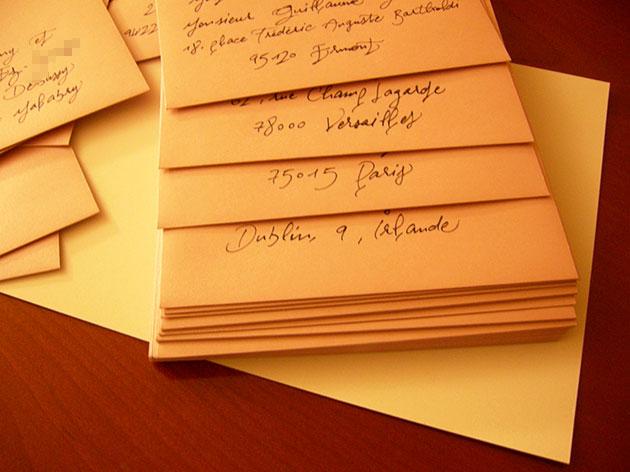 Monsieur Guillaume
18, place Frédéric Auguste Bartholdi
95120 Ermont
rue Champ Lagarde
78000 Versailles
75015 Paris
Dublin 9, Irlande
et
Debussy
Malabry